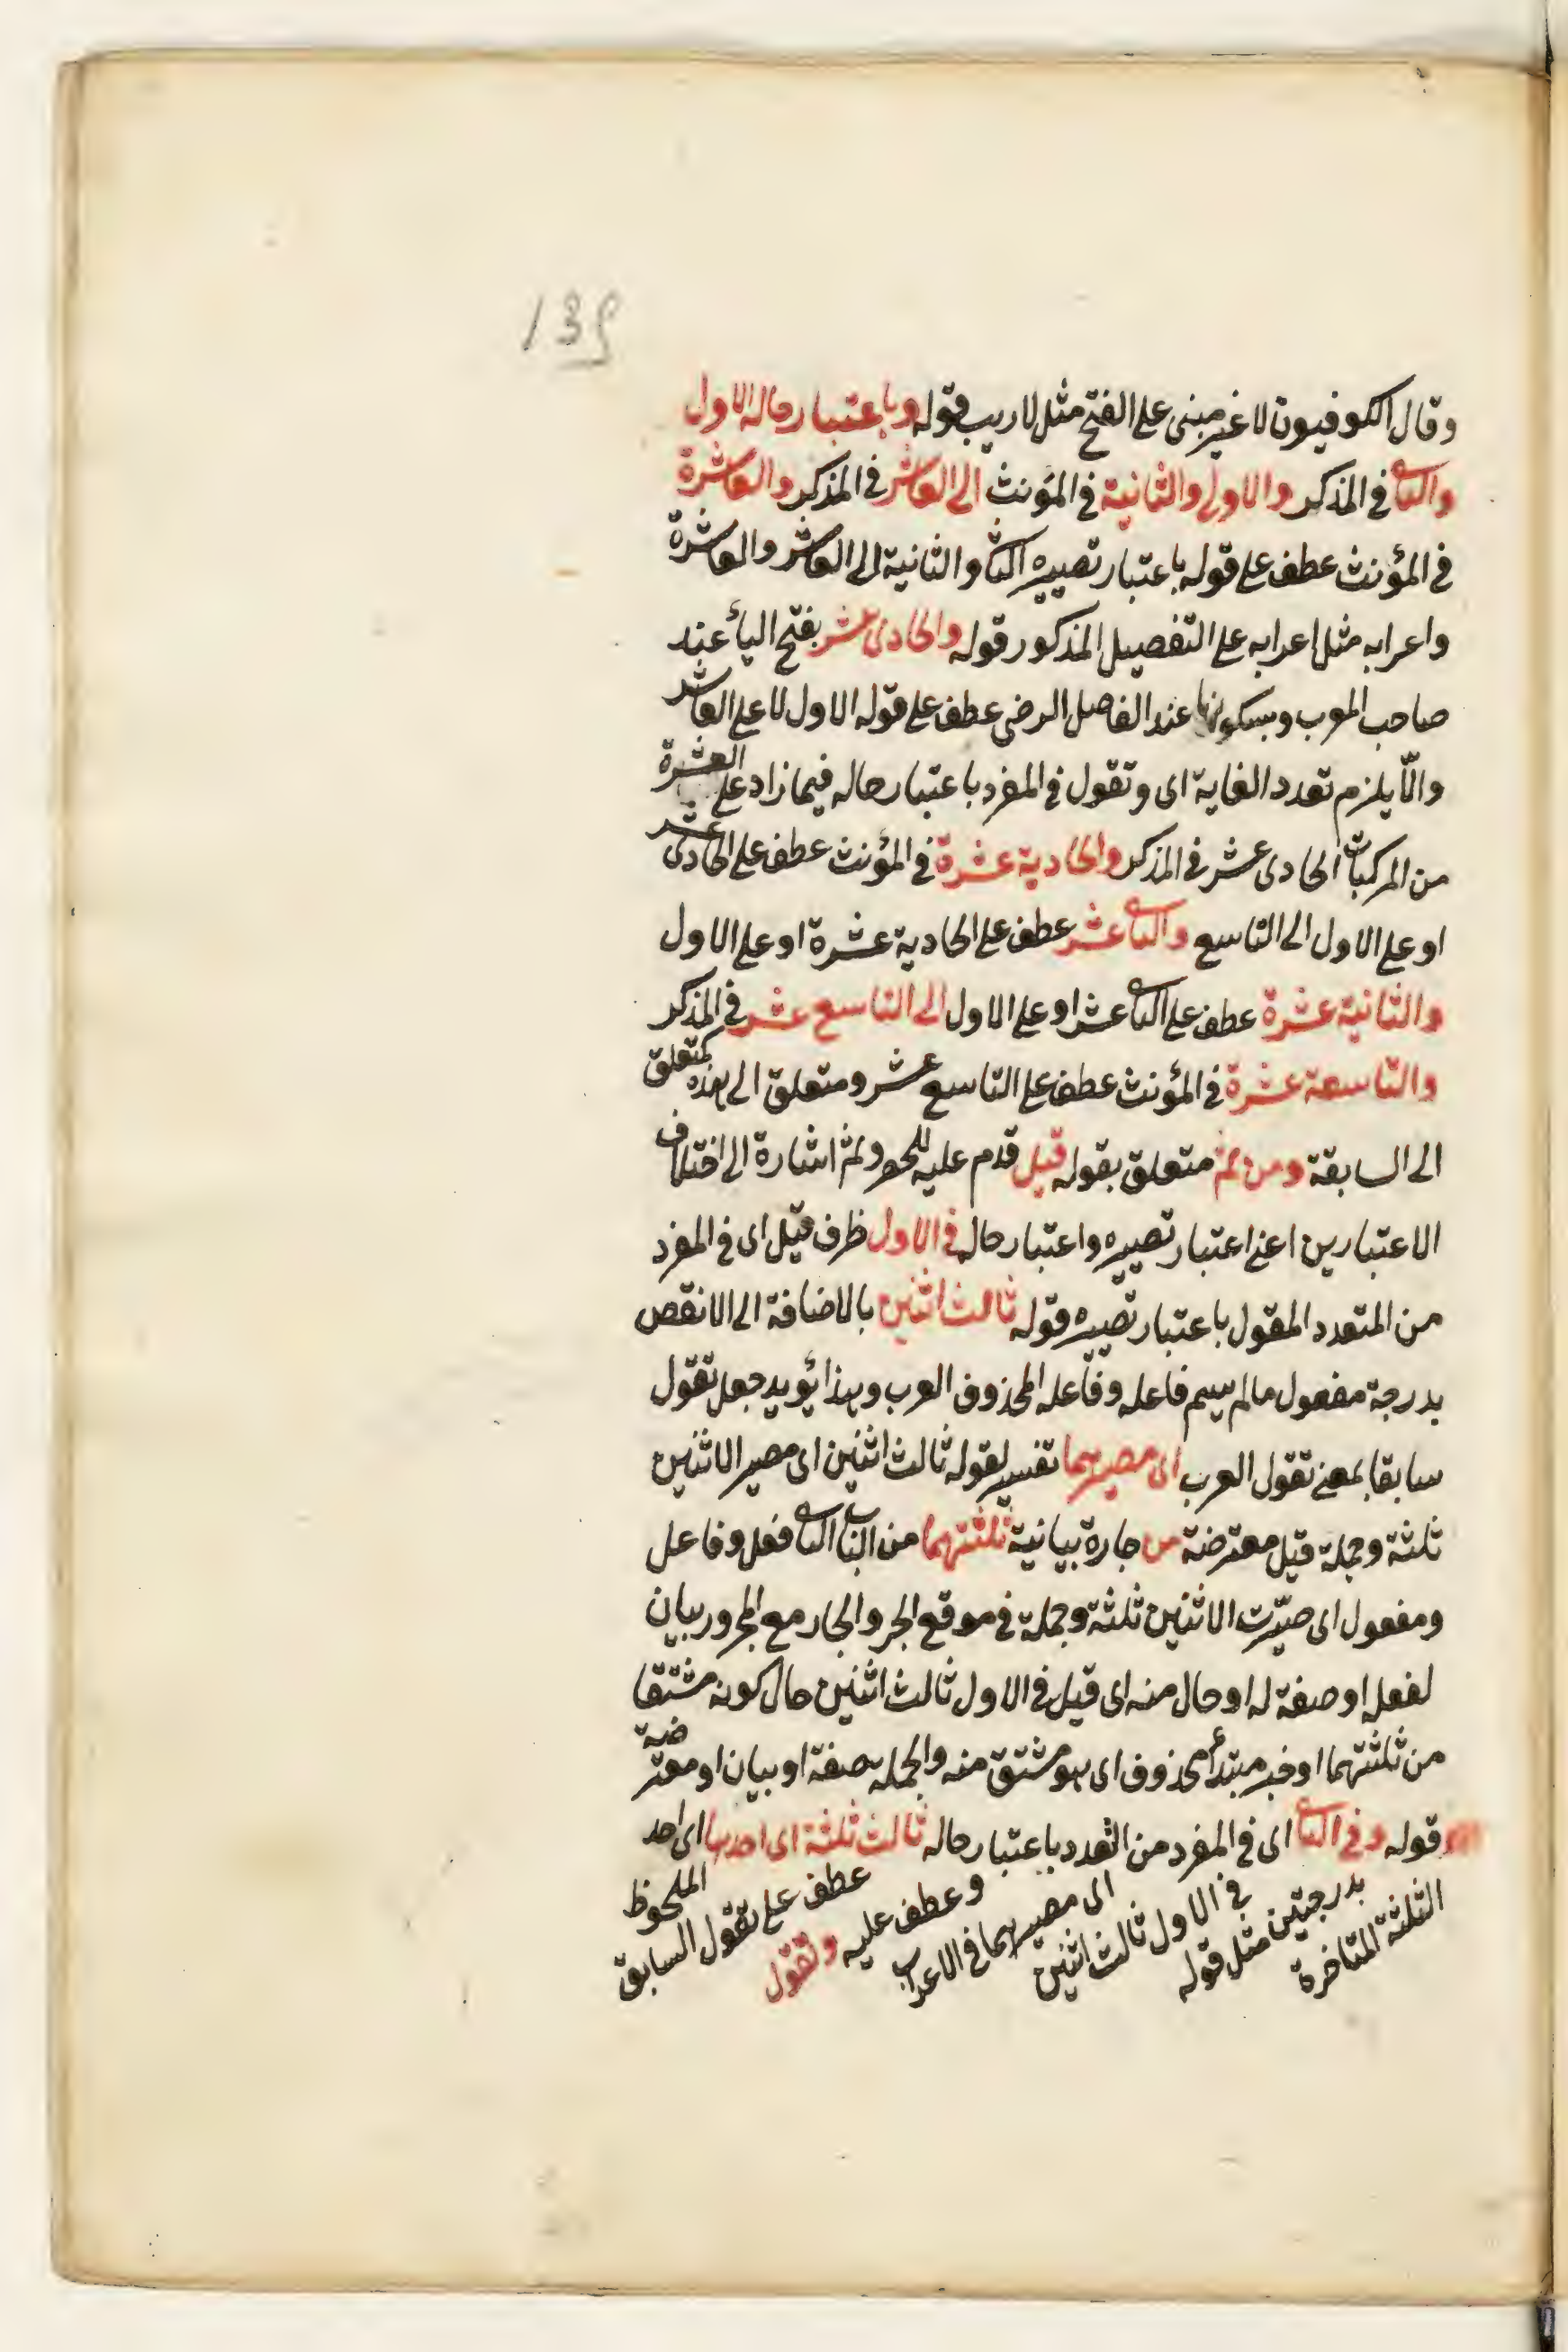 139
وقال الكوفيون لا غير مبنى على الفتح مثل لا ريب قوله وباعتبار حاله الاول
والثانى فى المذكر والاولى والثانية فى المؤنث الى العاشر فى المذكر والعاشرة
فى المؤنث عطف على قوله باعتبار تصييره الثانى والثانية الى العاشر والعاشرة
واعرابه مثل اعرابه على التفصيل المذكور قوله والحادى عشر بفتح اليأ عند
صاحب المعرب وبسكونها عند الفاضل الرضى عطف على قوله الاول لا على العاشر
والّا يلزم تعدد الغاية اى وتقول فى المفرد باعتبار حاله فيما زاد على العشرة
من المركبات الحادى عشر فى المذكر والحادية عشرة فى المؤنث عطف على الحادى عشر
او على الاول الى التاسع والثانى عشر عطف على الحادية عشرة او على الاول
والثانية عشرة عطف على الثانى عشر او على الاول الى التاسع عشر فى المذكر
والتاسعة عشرة فى المؤنث عطف على التاسع عشر ومتعلق الى هذه كمتعلق
الى السابقة ومن ثم متعلق بقوله قيل قدم عليه للحصر وثم اشارة الى اختلاف
الاعتبارين اعنى اعتبار تصييره واعتبار حاله فى الاول ظرف قيل اى فى المفرد
من المتعدد المقول باعتبار تصييره قوله ثالث اثنين بالاضافة الى الانقص
بدرجة مفعول مالم يسم فاعله وفاعله المحذوف العرب وهذا يؤيد جعل تقول
سابقا بمعنى تقول العرب اى مصيرهما تفسير لقوله ثالث اثنين اى مصير الاثنين
ثلثة وجملة قيل معترضة من جارة بيانية ثلثتهما من الباب الثانى فعل وفاعل
ومفعول اى صيّرت الاثنين ثلثة وجملة فى موقع الجر والجار مع المجرور بيان
لفعل او صفة له او حال منه اى قيل فى الاول ثالث اثنين حال كونه مشتقا
من ثلثتهما او خبر مبتدأ محذوف اى هو مشتق منه والجملة صفة او بيان او معترضة
قوله وفى الثانى اى فى المفرد من التعدد باعتبار حاله ثالث ثلثة اى احدها اى احد
الثلثة المتأخرة بدرجتين مثل قوله فى الاول ثالث اثنين الى مصيرهما فى الاعراب وعطف عليه وتقول عطف على تقول السابق الملحوظ